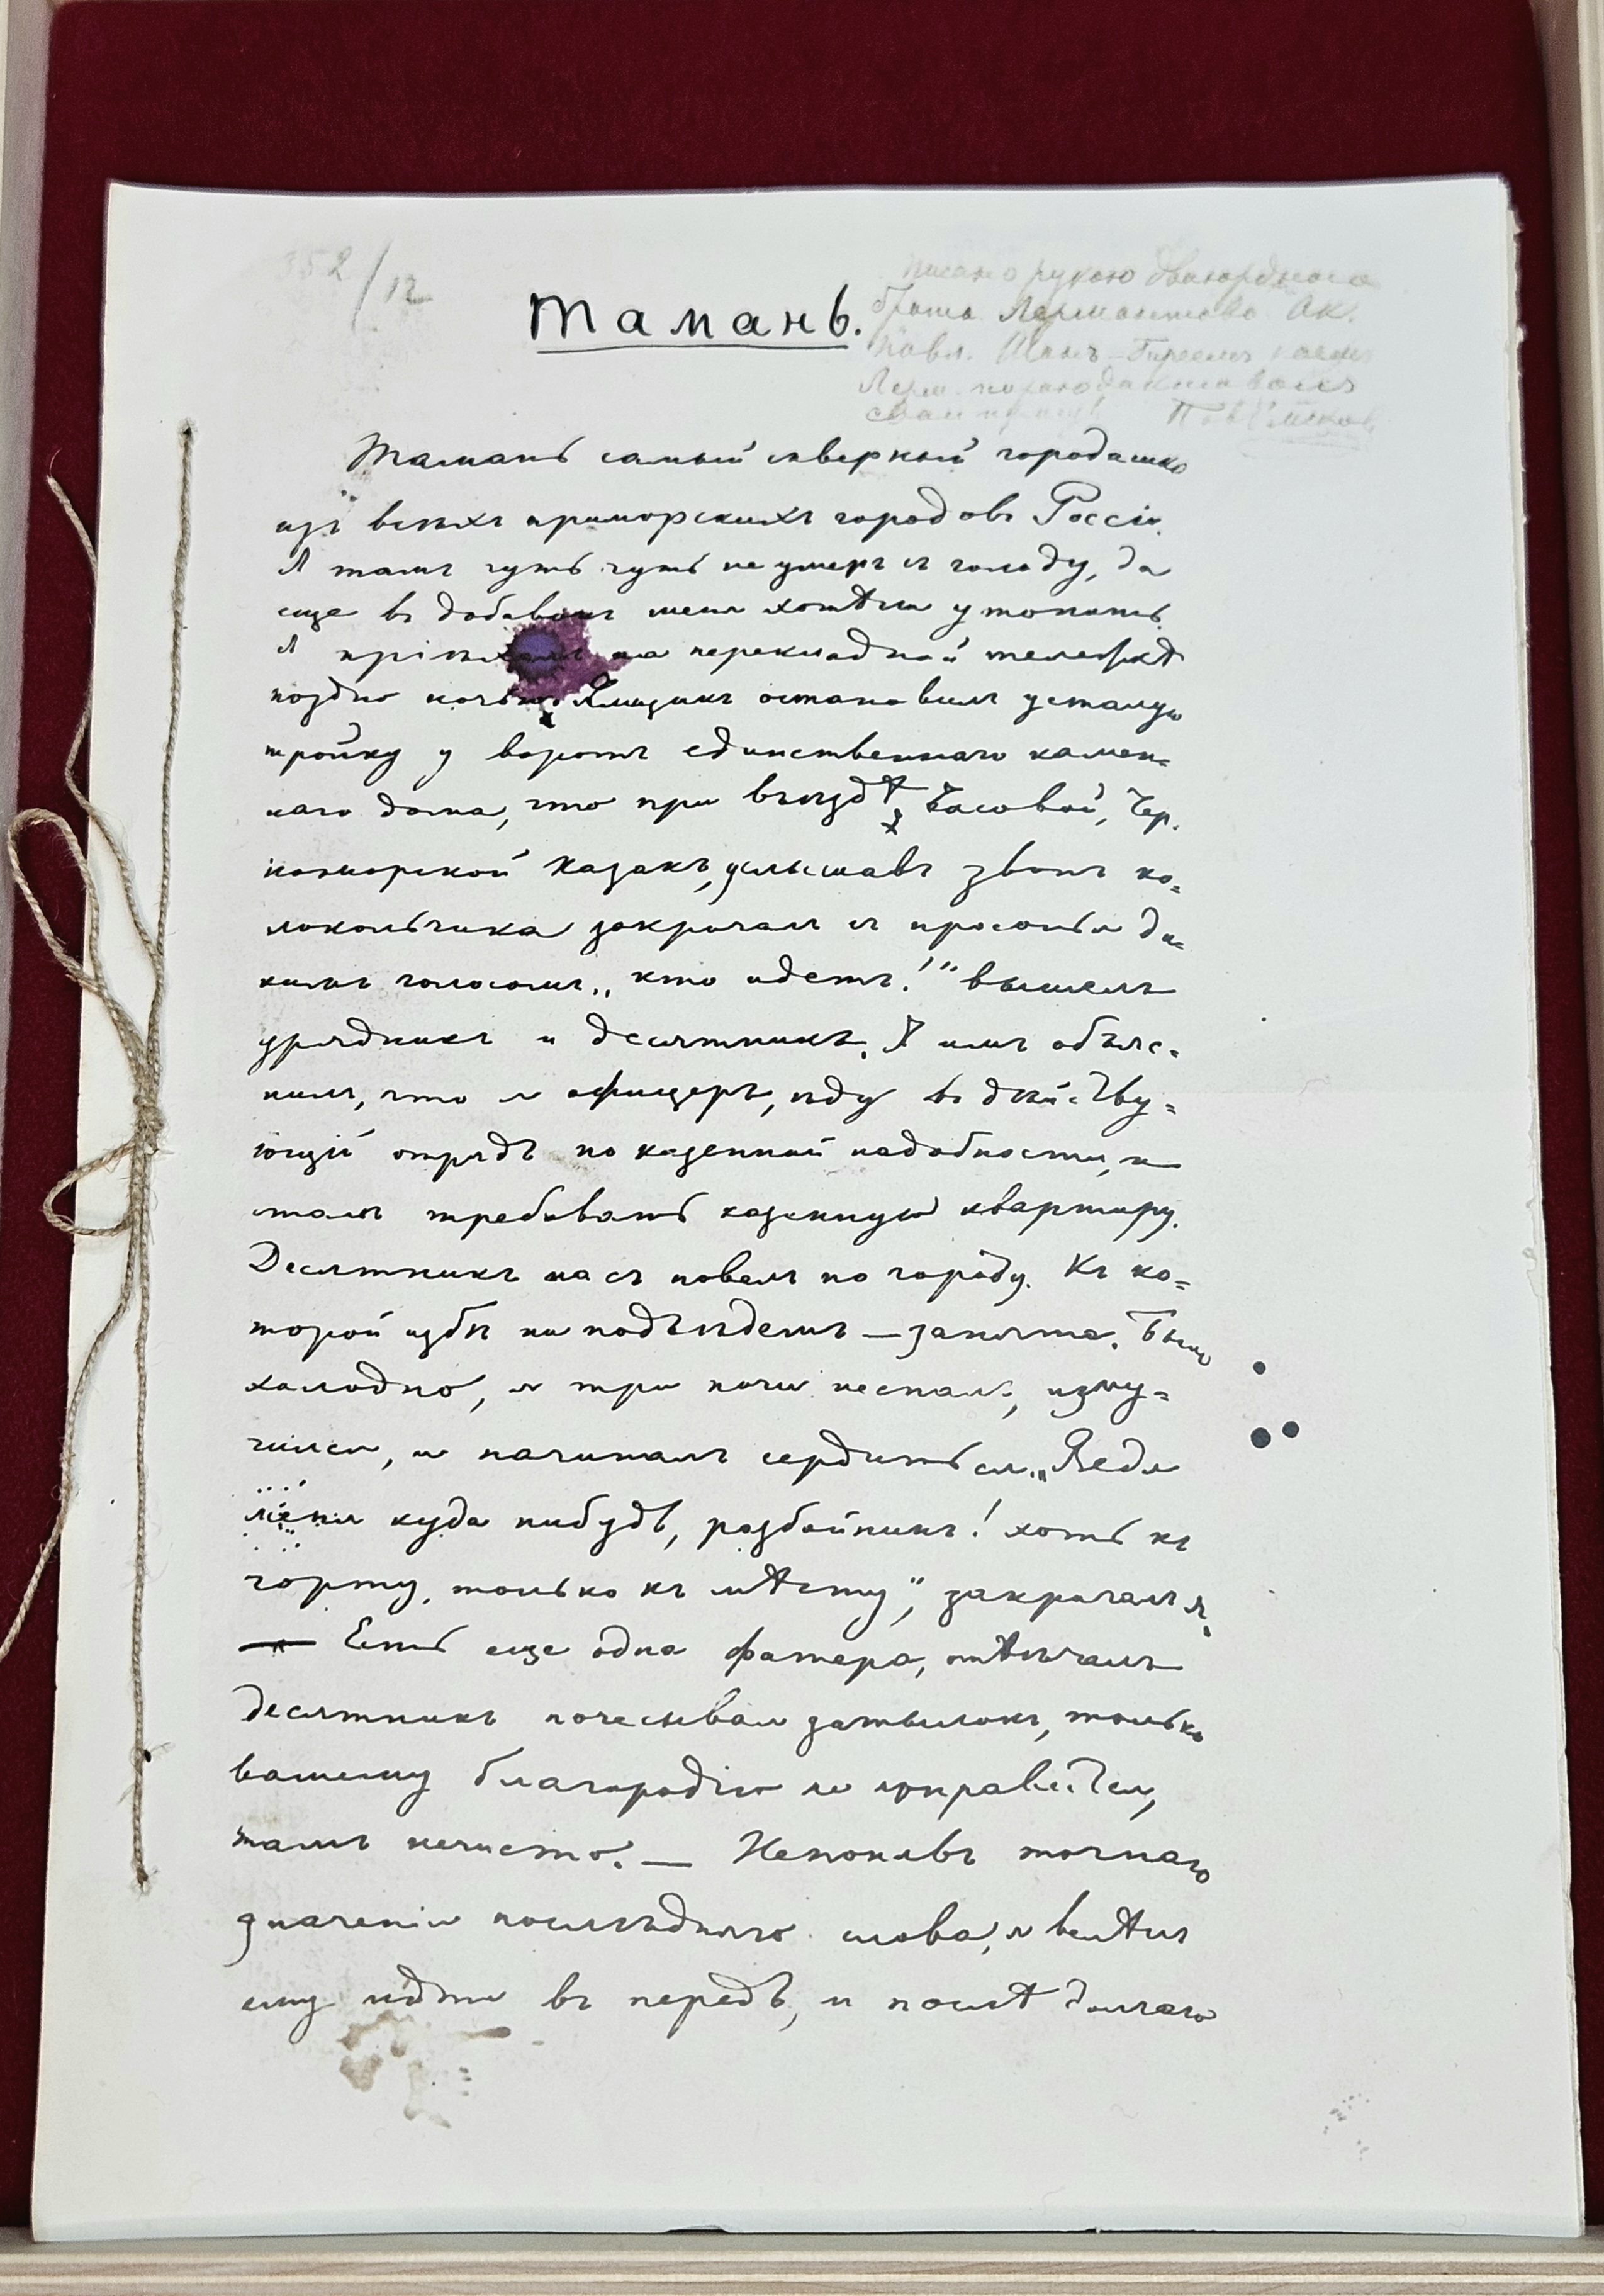 352/12
Тамань.
писано рукою двоюроднаго
брата Лермонтова Ак.
Павл. Шанъ-Гиреемъ
Тамань самый скверный городишко
изъ всѣхъ приморскихъ городовъ Россіи.
Я тамъ чуть чуть не умеръ съ голоду, да
еще въ добавокъ меня хотѣли утопить.
Я пріѣхалъ на перекладной тележкѣ
поздно ночью. Ямщикъ остановилъ усталую
тройку у воротъ единственнаго камен=
наго дома, что при въѣздѣ. Часовой, Чер.
номорской казакъ, услышавъ звонъ ко=
локольчика закричалъ съ просонья ди=
кимъ голосомъ „кто идетъ!“ вышелъ
урядникъ и десятникъ. Я имъ объяс=
нилъ, что я офицеръ, ѣду въ дѣйству=
ющій отрядъ по казенной надобности, и
сталъ требовать казенную квартиру.
Десятникъ насъ повелъ по городу. Къ ко=
торой избѣ ни подъѣдемъ — занята. Было
холодно, я три ночи неспалъ, изму=
чился, и начиналъ сердиться. „Веди
меня куда нибудь, разбойникъ! хоть къ
чорту, только къ мѣсту“, закричалъ я,
— Есть еще одна фатера, отвѣчалъ
десятникъ почесывая затылокъ, только
вашему благородію не понравится,
тамъ нечисто. — Непонявъ точнаго
значенія послѣдняго слова, я велѣлъ
ему идти въ передъ, и послѣ долгаго